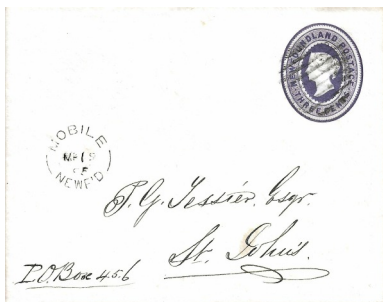 NEWFOUNDLAND POSTAGE
THREE PENTS
MOBILE
NEWF'D
T. G. Tessier. Esqr.
St. John's.
P.O. Box 456